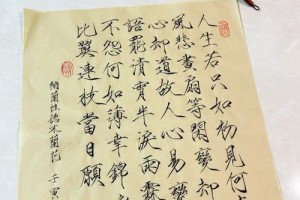 人生若只如初見何
風悲畫扇等閑變却
心却道故人心易變
語罷清宵半淚雨霖
不怨何如薄幸錦
比翼連枝當日願
納蘭性德木蘭花 壬寅